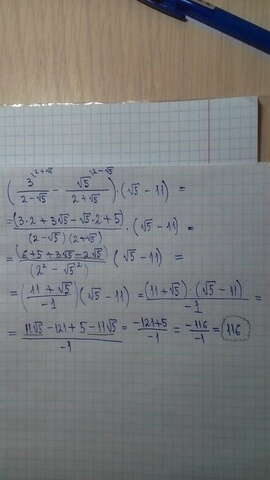 (3^{2+√5}/(2-√5) - √5^{2-√5}/(2+√5)) · (√5 - 11) =
= (3·2 + 3√5 - √5·2 + 5)/((2-√5)(2+√5)) · (√5 - 11) =
= (6+5+3√5-2√5)/(2² - √5²) (√5 - 11) =
= (11 + √5)/(-1) (√5 - 11) = (11+√5)·(√5 - 11)/(-1) =
= (11√5 - 121 + 5 - 11√5)/(-1) = (-121+5)/(-1) = (-116)/(-1) = 116